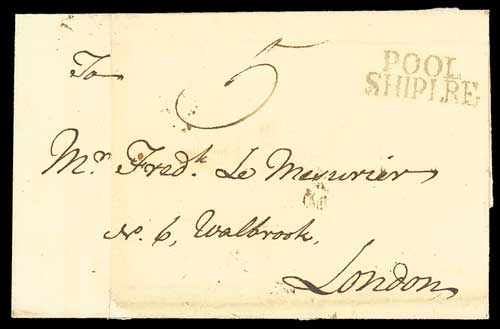 POOL
SHIPLRE
To
5
Mr. Fredk. Le Mesurier
No. 6, Walbrook,
London